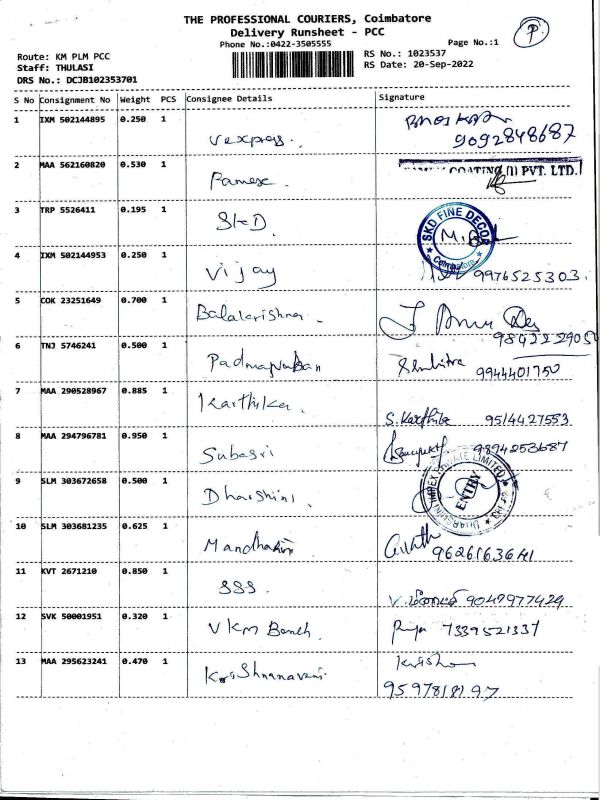 THE PROFESSIONAL COURIERS, Coimbatore
Delivery Runsheet - PCC
P
Phone No.:0422-3505555
Page No.:1
Route: KM PLM PCC
RS No.: 1023537
Staff: THULASI
RS Date: 20-Sep-2022
DRS No.: DCJB102353701
S No Consignment No Weight PCS Consignee Details Signature
1 IXM 502144895 0.250 1 Vexpress. 9092848687
2 MAA 562160820 0.530 1 COATING (I) PVT. LTD.
3 TRP 5526411 0.195 1 SKD SKD FINE DECOR Coimbatore
4 IXM 502144953 0.250 1 Vijay 9976525303
5 COK 23251649 0.700 1 Balakrishna
6 TNJ 5746241 0.500 1 9944401750
7 MAA 290528967 0.885 1 Karthika S. Karthika 9514427553
8 MAA 294796781 0.950 1 Subasri 9894253687
9 SLM 303672658 0.500 1 Dharshini. DHARSHINI IMPEX PRIVATE LIMITED ENTRY
10 SLM 303681235 0.625 1
11 KVT 2671210 0.850 1 SSS. 9047977429
12 SVK 50001951 0.320 1 VKM 7339521337
13 MAA 295623241 0.470 1 9597818197